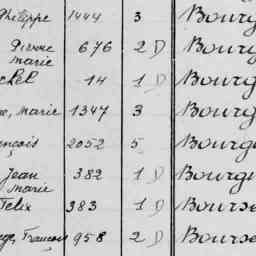 Philippe 1444 3 Bourg
Pierre Marie 676 2 D Bourg
chel 14 1 D Bourg
e, Marie 1347 3 Bourg
ançois 2052 5 Bourg
Jean Marie 382 1 D Bourgu
Felix 383 1 D Bourse
ge, François 958 2 D Bourse